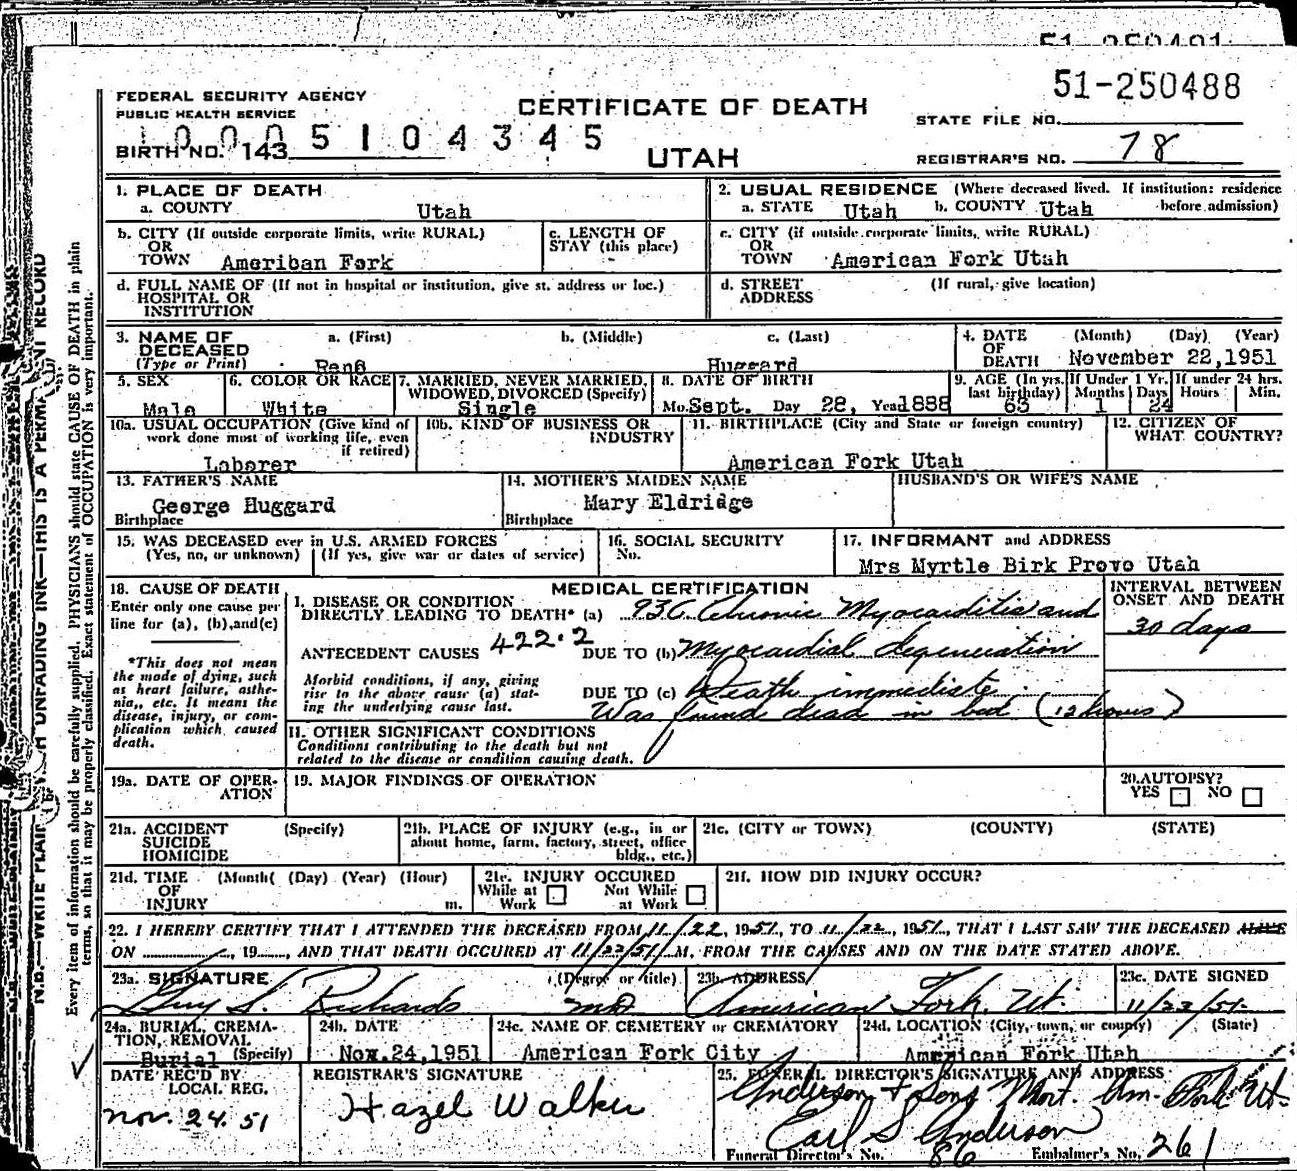 51-250491
51-250488
FEDERAL SECURITY AGENCY
PUBLIC HEALTH SERVICE
CERTIFICATE OF DEATH
STATE FILE NO.
1000 5104345
BIRTH NO. 143
UTAH
REGISTRAR'S NO. 78
1. PLACE OF DEATH
a. COUNTY Utah
2. USUAL RESIDENCE (Where deceased lived. If institution: residence before admission)
a. STATE Utah b. COUNTY Utah
b. CITY (If outside corporate limits, write RURAL)
OR
TOWN Ameriban Fork
c. LENGTH OF
STAY (this place)
c. CITY (if outside corporate limits, write RURAL)
OR
TOWN American Fork Utah
d. FULL NAME OF (If not in hospital or institution, give st. address or loc.)
HOSPITAL OR
INSTITUTION
d. STREET (If rural, give location)
ADDRESS
3. NAME OF
DECEASED
(Type or Print)
a. (First) b. (Middle) c. (Last)
Huggard
4. DATE (Month) (Day) (Year)
OF
DEATH November 22,1951
5. SEX
Male
6. COLOR OR RACE
White
7. MARRIED, NEVER MARRIED,
WIDOWED, DIVORCED (Specify)
Single
8. DATE OF BIRTH
Mo. Sept. Day 28, Year 1888
9. AGE (In yrs. last birthday) 63
If Under 1 Yr. Months 1 Days 24
If under 24 hrs. Hours Min.
10a. USUAL OCCUPATION (Give kind of
work done most of working life, even
if retired)
Laborer
10b. KIND OF BUSINESS OR
INDUSTRY
11. BIRTHPLACE (City and State or foreign country)
American Fork Utah
12. CITIZEN OF
WHAT COUNTRY?
13. FATHER'S NAME
George Huggard
Birthplace
14. MOTHER'S MAIDEN NAME
Mary Eldridge
Birthplace
HUSBAND'S OR WIFE'S NAME
15. WAS DECEASED ever in U.S. ARMED FORCES
(Yes, no, or unknown) (If yes, give war or dates of service)
16. SOCIAL SECURITY
No.
17. INFORMANT and ADDRESS
Mrs Myrtle Birk Provo Utah
18. CAUSE OF DEATH
Enter only one cause per
line for (a), (b), and (c)
*This does not mean
the mode of dying, such
as heart failure, asthe-
nia, etc. It means the
disease, injury, or com-
plication which caused
death.
MEDICAL CERTIFICATION
INTERVAL BETWEEN
ONSET AND DEATH
I. DISEASE OR CONDITION
DIRECTLY LEADING TO DEATH* (a) 93C Chronic Myocarditis and
30 days
422.2
ANTECEDENT CAUSES DUE TO (b) Myocardial degeneration
Morbid conditions, if any, giving
rise to the above cause (a) stat-
ing the underlying cause last.
DUE TO (c) Death immediate
Was found dead in bed (12 hours)
II. OTHER SIGNIFICANT CONDITIONS
Conditions contributing to the death but not
related to the disease or condition causing death.
19a. DATE OF OPER-
ATION
19. MAJOR FINDINGS OF OPERATION
20. AUTOPSY?
YES NO
21a. ACCIDENT (Specify)
SUICIDE
HOMICIDE
21b. PLACE OF INJURY (e.g., in or
about home, farm, factory, street, office
bldg., etc.)
21c. (CITY or TOWN) (COUNTY) (STATE)
21d. TIME (Month( (Day) (Year) (Hour)
OF
INJURY m.
21e. INJURY OCCURED
While at Work Not While at Work
21f. HOW DID INJURY OCCUR?
22. I HEREBY CERTIFY THAT I ATTENDED THE DECEASED FROM 11/22, 1951, TO 11/22, 1951, THAT I LAST SAW THE DECEASED ALIVE
ON , 19 , AND THAT DEATH OCCURED AT 11/22/51 M. FROM THE CAUSES AND ON THE DATE STATED ABOVE.
23a. SIGNATURE (Degree or title)
Guy S. Richards MD
23b. ADDRESS
American Fork, Ut.
23c. DATE SIGNED
11/23/51
24a. BURIAL, CREMA-
TION, REMOVAL
Burial (Specify)
24b. DATE
Nov.24,1951
24c. NAME OF CEMETERY or CREMATORY
American Fork City
24d. LOCATION (City, town, or county) (State)
American Fork Utah
DATE REC'D BY
LOCAL REG.
Nov. 24. 51
REGISTRAR'S SIGNATURE
Hazel Walker
25. FUNERAL DIRECTOR'S SIGNATURE AND ADDRESS
Anderson & Sons Mort. Am. Fork Ut.
Earl S Anderson
Funeral Director's No. 86 Embalmer's No. 261
N.B.—WRITE PLAINLY WITH UNFADING INK—THIS IS A PERMANENT RECORD
Every item of information should be carefully supplied. PHYSICIANS should state CAUSE OF DEATH in plain
terms, so that it may be properly classified. Exact statement of OCCUPATION is very important.